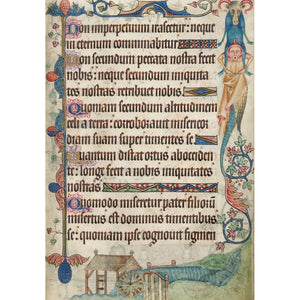 Non imperpetuum irascetur: neque
in eternum comminabitur
Non secundum peccata nostra fecit
nobis: neque secundum iniquita
tes nostras retribuet nobis
Quoniam secundum altitudinem
celi a terra: corroborauit misericor
diam suam super timentes se
Quantum distat ortus ab occiden
te: longe fecit a nobis iniquitates
nostras
Quomodo miseretur pater filiorum
misertus est dominus timentibus
se: quoniam ipse cognouit figmen